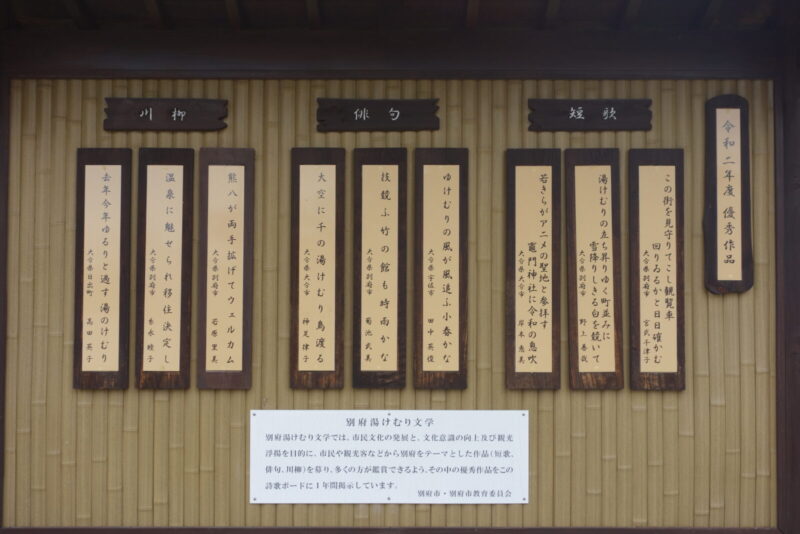 令和二年度 優秀作品
短歌
この街を見守りてこし観覧車
回りゐるかと日日確かむ
大分県別府市 宮武千津子
湯けむりの立ち昇りゆく町並みに
雪降りしきる白を競いて
大分県別府市 野上善哉
若きらがアニメの聖地と参拝す
竈門神社に令和の息吹
大分県大分市 岸本恵美
俳句
ゆけむりの風が風追ふ小春かな
大分県宇佐市 田中英俊
技競ふ竹の館も時雨かな
大分県別府市 菊池武美
大空に千の湯けむり鳥渡る
大分県大分市 神足律子
川柳
熊八が両手拡げてウェルカム
大分県別府市 若原里美
温泉に魅せられ移住決定し
大分県別府市 永睦子
去年今年ゆるりと過す湯のけむり
大分県日出町 高田英子
別府湯けむり文学
別府湯けむり文学では、市民文化の発展と、文化意識の向上及び観光
浮揚を目的に、市民や観光客などから別府をテーマとした作品(短歌、
俳句、川柳)を募り、多くの方が鑑賞できるよう、その中の優秀作品をこの
詩歌ボードに1年間掲示しています。
別府市・別府市教育委員会